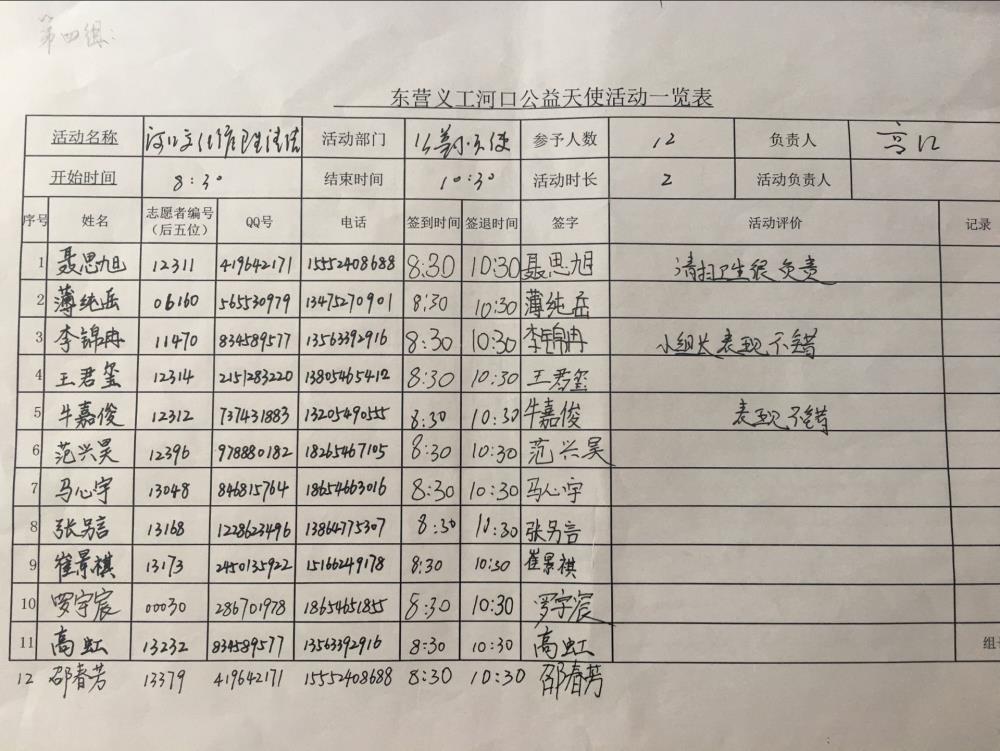 第四组:
东营义工河口公益天使活动一览表
活动名称 活动部门 公益天使 参予人数 12 负责人 高虹
开始时间 8:30 结束时间 10:30 活动时长 2 活动负责人
序号 姓名 志愿者编号（后五位） QQ号 电话 签到时间 签退时间 签字 活动评价 记录
1 聂思旭 12311 419642171 15552408688 8:30 10:30 聂思旭 清扫卫生很负责
2 薄纯岳 06160 565530979 13475270901 8:30 10:30 薄纯岳
3 李锦冉 11470 834589577 13563392916 8:30 10:30 李锦冉 小组长表现不错
4 王君玺 12314 2151283220 13805465412 8:30 10:30 王君玺
5 牛嘉俊 12312 737431883 1320549055 8:30 10:30 牛嘉俊 表现不错
6 范兴昊 12396 978880182 18265467105 8:30 10:30 范兴昊
7 马心宇 13048 846815764 18654663016 8:30 10:30 马心宇
8 张另言 13168 1228623496 13864775307 8:30 10:30 张另言
9 崔景祺 13173 2450135922 15166249178 8:30 10:30 崔景祺
10 罗宇宸 00030 286701978 18654651855 8:30 10:30 罗宇宸
11 高虹 13232 834589577 13563392916 8:30 10:30 高虹 组
12 邵春芳 13379 419642171 15552408688 8:30 10:30 邵春芳